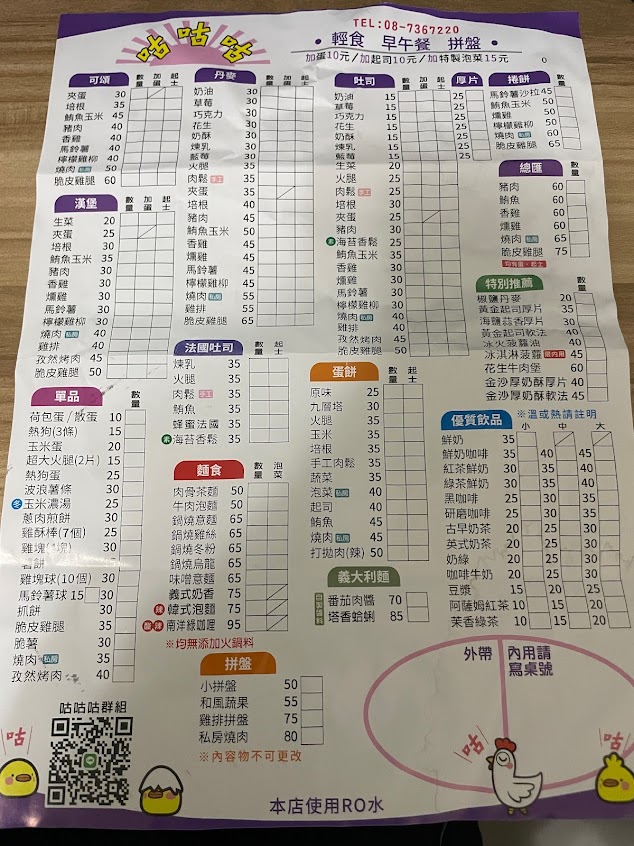 咕咕咕
TEL:08-7367220
• 輕食 早午餐 拼盤 •
加蛋10元/加起司10元/加特製泡菜15元
可頌 數量 加蛋 起士
夾蛋 30
培根 35
鮪魚玉米 45
豬肉 40
香雞 40
馬鈴薯 40
檸檬雞柳 40
燒肉 私房 50
脆皮雞腿 60
漢堡 數量 加蛋 起士
生菜 20
夾蛋 25
培根 30
鮪魚玉米 35
豬肉 30
香雞 30
燻雞 30
馬鈴薯 30
檸檬雞柳 30
燒肉 私房 40
雞排 40
孜然烤肉 45
脆皮雞腿 50
單品 數量
荷包蛋/散蛋 10
熱狗(3條) 15
玉米蛋 20
超大火腿(2片) 15
熱狗蛋 25
波浪薯條 30
冬 玉米濃湯 25
蔥肉煎餅 30
雞酥棒(7個) 25
雞塊(塊) 30
薯餅
雞塊球(10個) 30
馬鈴薯球 15 30
抓餅 30
脆皮雞腿 35
脆薯 30
燒肉 私房 35
孜然烤肉 40
丹麥 數量 加蛋 起士
奶油 30
草莓 30
巧克力 30
花生 30
奶酥 30
煉乳 30
藍莓 30
肉鬆 手工 35
夾蛋 35
培根 40
豬肉 45
鮪魚玉米 50
香雞 45
燻雞 45
馬鈴薯 45
檸檬雞柳 45
燒肉 私房 55
雞排 55
脆皮雞腿 65
法國吐司 數量 起士
煉乳 35
火腿 35
肉鬆 手工 35
鮪魚 35
蜂蜜法國 35
素 海苔香鬆 35
麵食 數量 泡菜
肉骨茶麵 50
牛肉泡麵 50
鍋燒意麵 65
鍋燒雞絲 65
鍋燒冬粉 65
鍋燒烏龍 65
味噌意麵 65
義式奶香 75
辣 韓式泡麵 75
酸辣 南洋綠咖喱 95
※均無添加火鍋料
拼盤
小拼盤 50
和風蔬果 55
雞排拼盤 75
私房燒肉 80
※內容物不可更改
吐司 數量 加蛋 起士 厚片 數量
奶油 15 25
草莓 15 25
巧克力 15 25
花生 15 25
奶酥 15 25
煉乳 15 25
藍莓 15 25
生菜 20
火腿 25
肉鬆 手工 25
培根 30
夾蛋 25
豬肉 30
素 海苔香鬆 25
鮪魚玉米 35
香雞 30
燻雞 30
馬鈴薯 30
檸檬雞柳 30
燒肉 私房 40
雞排 40
孜然烤肉 45
脆皮雞腿 50
蛋餅 數量 起士
原味 25
九層塔 30
火腿 35
玉米 35
培根 35
手工肉鬆 35
蔬菜 35
泡菜 私房 40
起司 40
鮪魚 45
燒肉 私房 45
打拋肉(辣) 50
義大利麵
番茄肉醬 70
塔香蛤蜊 85
捲餅 數量
馬鈴薯沙拉 45
鮪魚玉米 50
燻雞 50
檸檬雞柳 50
燒肉 私房 60
脆皮雞腿 65
總匯 數量
豬肉 60
鮪魚 60
香雞 60
燻雞 60
燒肉 私房 65
脆皮雞腿 75
均有蛋、起士
特別推薦 數量
椒鹽丹麥 20
黃金起司厚片 35
海鹽蒜香厚片 30
黃金起司軟法 40
冰火菠蘿油 40
冰淇淋菠蘿 限內用 45
花生牛肉堡 60
金沙厚奶酥厚片 40
金沙厚奶酥軟法 45
優質飲品 ※溫或熱請註明
小 中 大
鮮奶 35
鮮奶咖啡 35 40 45
紅茶鮮奶 30 35 40
綠茶鮮奶 30 35 40
黑咖啡 20 25 30
研磨咖啡 20 25 30
古早奶茶 20 25 30
英式奶茶 20 25 30
奶綠 20 25 30
咖啡牛奶 20 25 30
豆漿 15 20 25
阿薩姆紅茶 10 15 20
茉香綠茶 10 15 20
外帶 內用請寫桌號
咕咕咕群組
咕
咕
咕
本店使用RO水